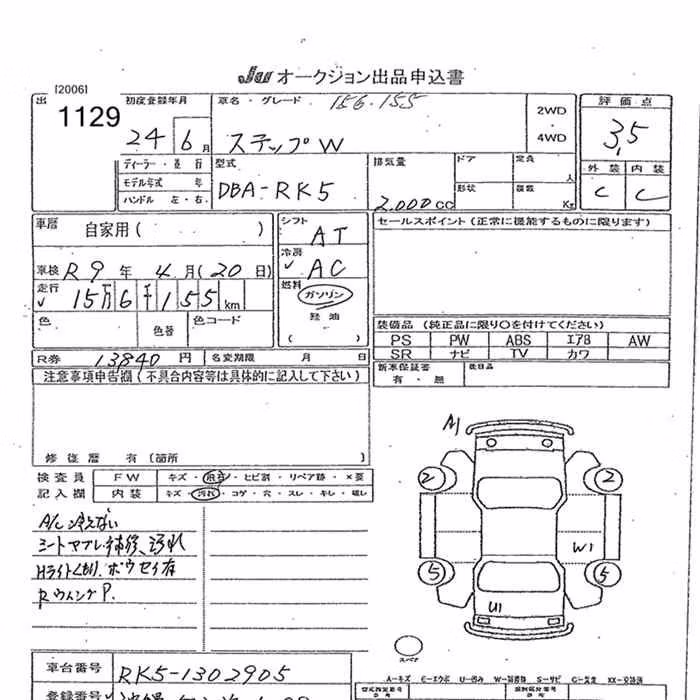 JU オークション出品申込書
[2006]
出 1129
初度登録年月 24 6月
車名・グレード 156.155
ステップW
2WD
4WD
評価点 3.5
外装 内装
C C
ディーラー・並行
モデル年式 年
ハンドル 左・右
型式 DBA-RK5
排気量 2.000 cc
ドア 定員 人
形状 積載 Kg
車歴 自家用( )
シフト AT
セールスポイント (正常に機能するものに限ります)
車検 R9年 4月(20日)
冷房 AC
走行 15万6千155 km
燃料 ガソリン
軽油
( )
色 色番 色コード
装備品 (純正品に限り○を付けてください)
PS PW ABS エアB AW
SR ナビ TV カワ
R券 13840円 名変期限 月 日
新車保証書 有・無
後日品
注意事項申告欄 (不具合内容等は具体的に記入して下さい)
修復歴 有 (箇所 )
検査員 FW キズ・飛石・ヒビ割・リペア跡・×要
記入欄 内装 キズ・汚れ・コゲ・穴・スレ・キレ・破レ
A/C 冷えない
シートヤブレ補修、汚れ
Hライトくもり、ボウセイ有
RウィングP.
A1
2 2
W1
5 5
U1
スペア
車台番号 RK5-1302905
A-キズ E-エクボ U-凹み W-補修跡 S-サビ C-腐食 XX-交換済
登録番号